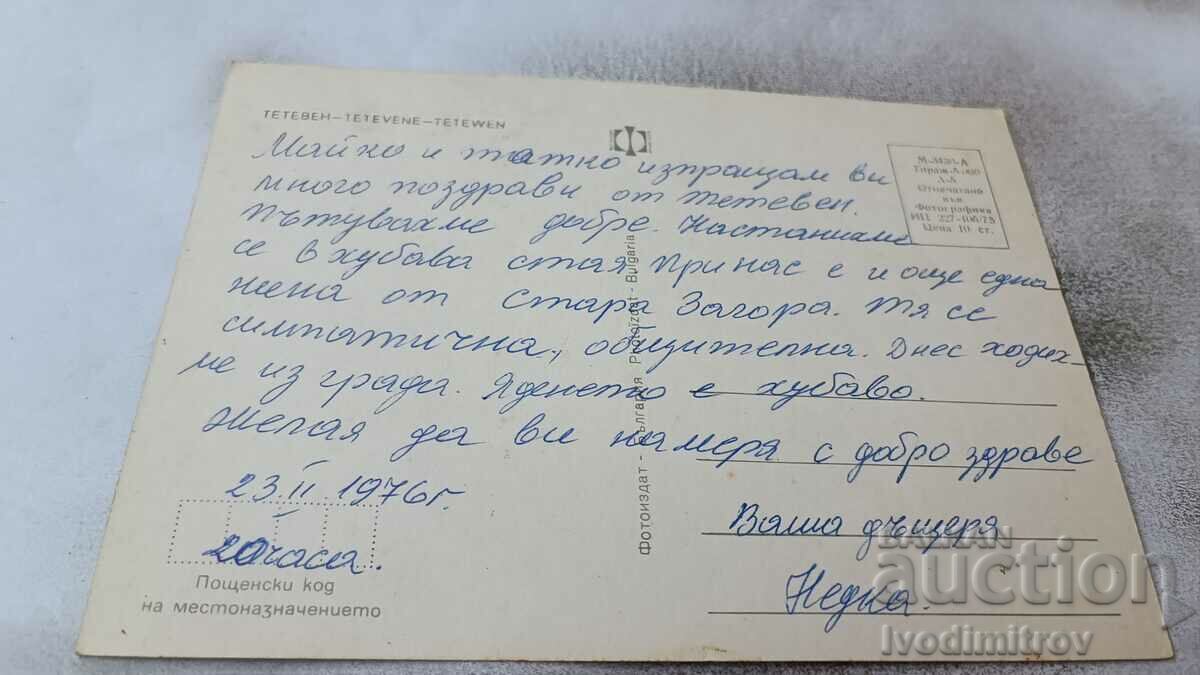 ТЕТЕВЕН–TETEVENE–TETEWEN
Майко и татко изпращам ви
много поздрави от Тетевен.
Пътувахме добре. Настанихме
се в хубава стая При нас е и още една
жена от Стара Загора. Тя се
симпатична, общителна. Днес ходих-
ме из града. Яденето е хубаво.
Желая да ви намеря с добро здраве
23.II.1976г.
20 часа.
Ваша дъщеря
Недка.
Пощенски код
на местоназначението
Фотоиздат - България Photoizdat - Bulgaria
Отпечатано
във
Фотографика
Цена 10 ст.
BALKAN
auction
Ivodimitrov